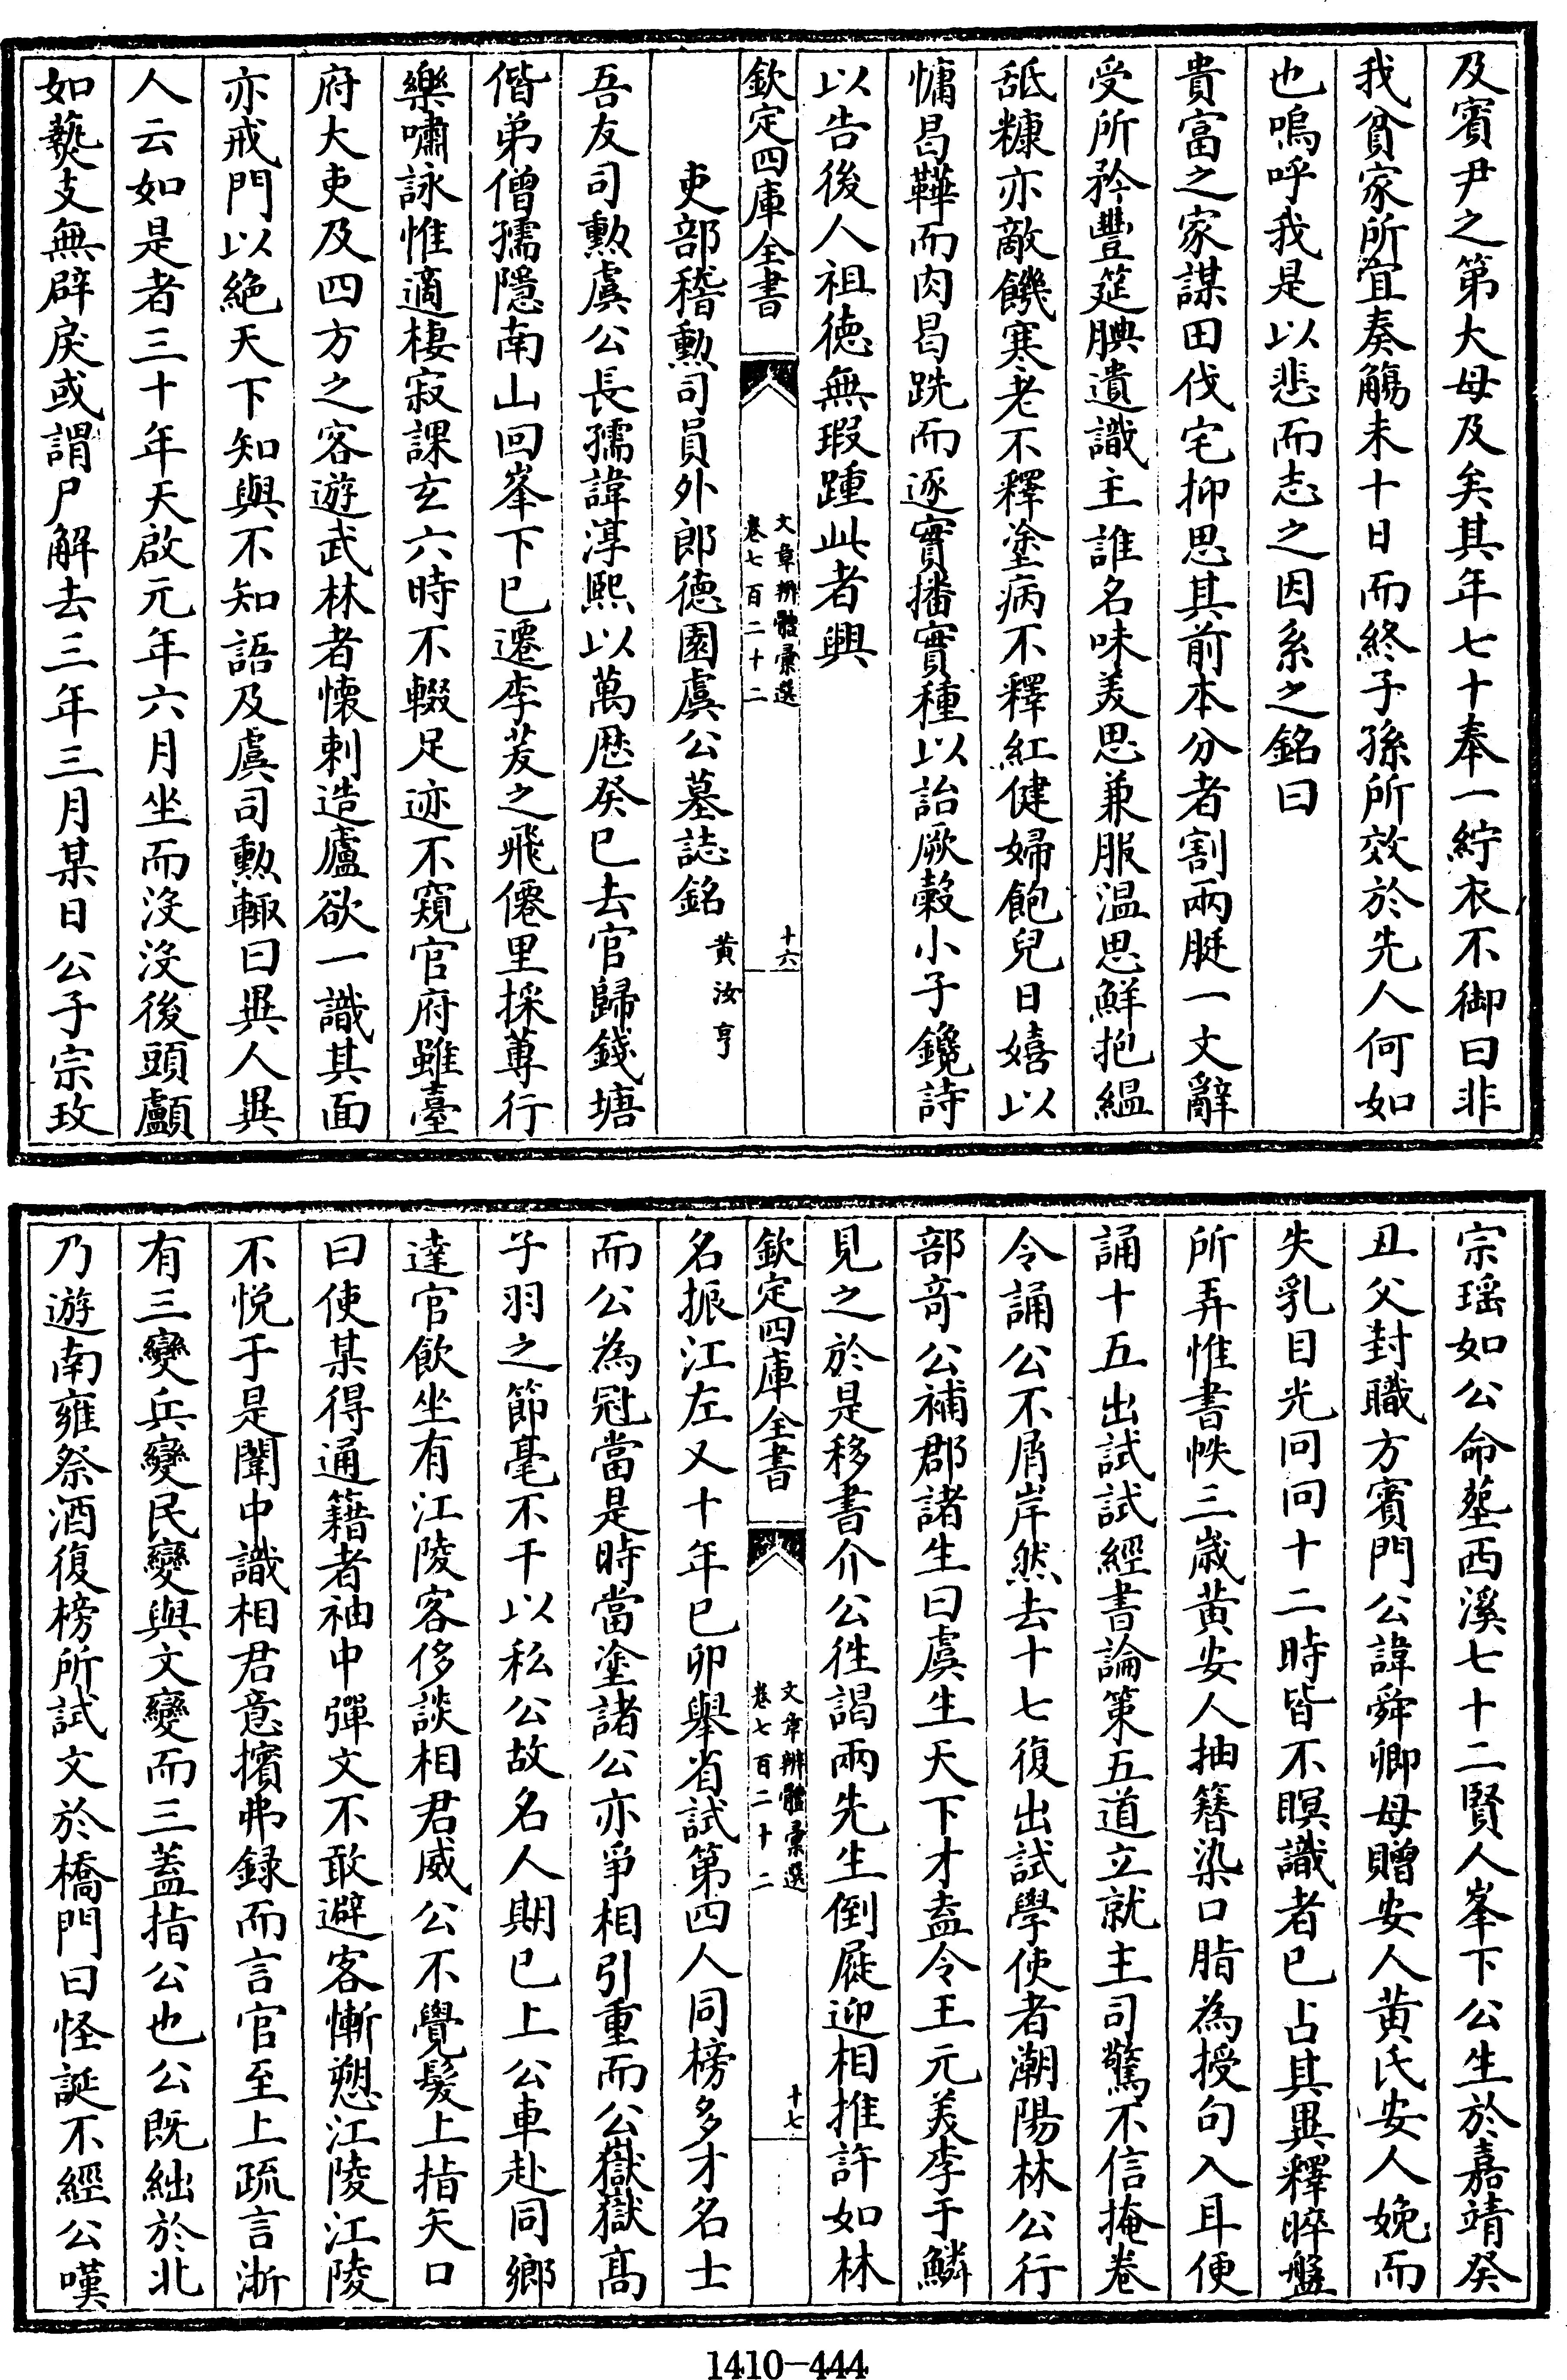 及賓尹之第大母及矣其年七十奉一紵衣不御曰非
我貧家所宜奏觴未十日而終子孫所效於先人何如
也嗚呼我是以悲而志之因系之銘曰
貴富之家謀田伐宅抑思其前本分者割兩脡一文辭
受所矜豐筵腆遺識主誰名味羙思兼服温思鮮抱緼
舐糠亦敵饑寒老不釋塗病不釋紅健婦飽兒日嬉以
慵曷鞾而肉曷跣而逐實播實種以詒厥榖小子鑱詩
以告後人祖徳無瑕踵此者興
欽定四庫全書
文章辨體彚選
卷七百二十二
十六
吏部稽勲司員外郎德園虞公墓誌銘
黄汝亨
吾友司勲虞公長孺諱淳熙以萬厯癸巳去官歸錢塘
偕弟僧孺隱南山回峯下已遷李芨之飛僊里採蓴行
樂嘯詠惟適棲寂課玄六時不輟足迹不窺官府雖臺
府大吏及四方之客遊武林者懐刺造廬欲一識其面
亦戒門以絶天下知與不知語及虞司勲輙曰異人異
人云如是者三十年天啟元年六月坐而沒沒後頭顱
如爇支無辟戾或謂尸解去三年三月某日公子宗玫
宗瑶如公命塟西溪七十二賢人峯下公生於嘉靖癸
丑父封職方賓門公諱舜卿母贈安人黄氏安人娩而
失乳目光冋冋十二時皆不瞑識者已占其異釋晬盤
所弄惟書帙三歲黄安人抽簪染口脂為授句入耳便
誦十五出試試經書論策五道立就主司驚不信掩卷
令誦公不屑岸然去十七復出試學使者潮陽林公行
部竒公補郡諸生曰虞生天下才盍令王元羙李于鱗
見之於是移書介公徃謁兩先生倒屣迎相推許如林
欽定四庫全書
文章辨體彚選
卷七百二十二
十七
名振江左又十年已卯舉省試第四人同榜多才名士
而公為冠當是時當塗諸公亦爭相引重而公嶽嶽髙
子羽之節毫不干以私公故名人期已上公車赴同鄉
達官飲坐有江陵客侈談相君威公不覺髮上指矢口
曰使某得通籍者袖中彈文不敢避客慚愬江陵江陵
不悦于是闈中識相君意擯弗録而言官至上疏言浙
有三變兵變民變與文變而三葢指公也公既絀於北
乃遊南雍祭酒復榜所試文於橋門曰怪誕不經公嘆
1410-444